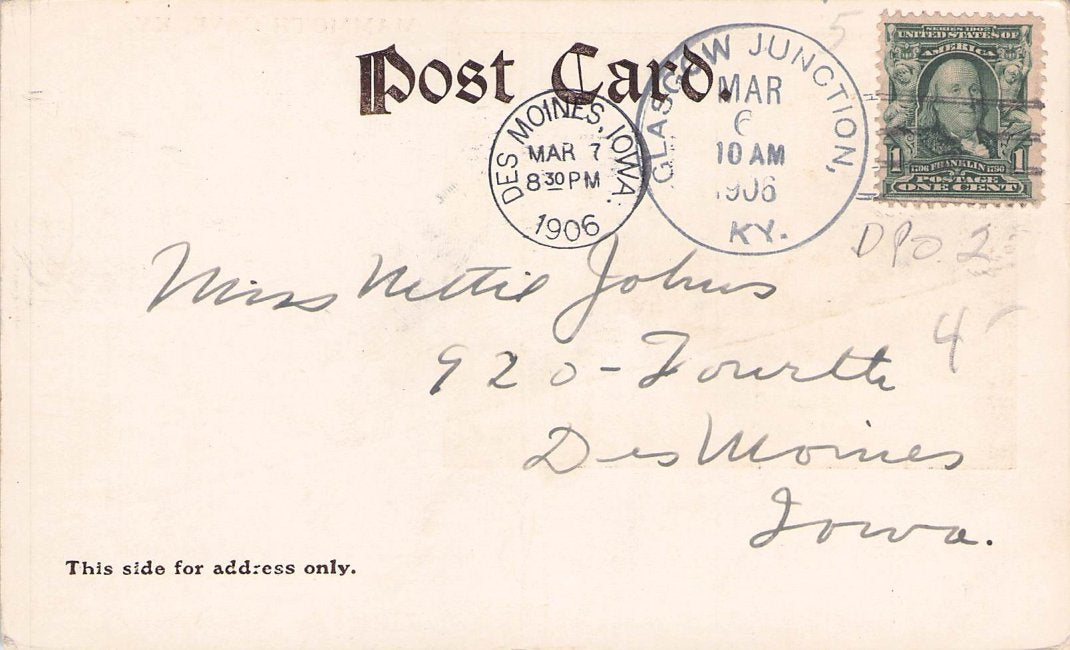 Post Card.
GLASGOW JUNCTION,
MAR
6
10 AM
1906
KY.
DES MOINES, IOWA.
MAR 7
8 30 PM
1906
SERIES 1902
UNITED STATES OF
AMERICA
1 1
1706 FRANKLIN 1790
POSTAGE
ONE CENT
5
DPO 2
4
Miss Nettie Johns
920 - Fourth
Des Moines
Iowa.
This side for address only.